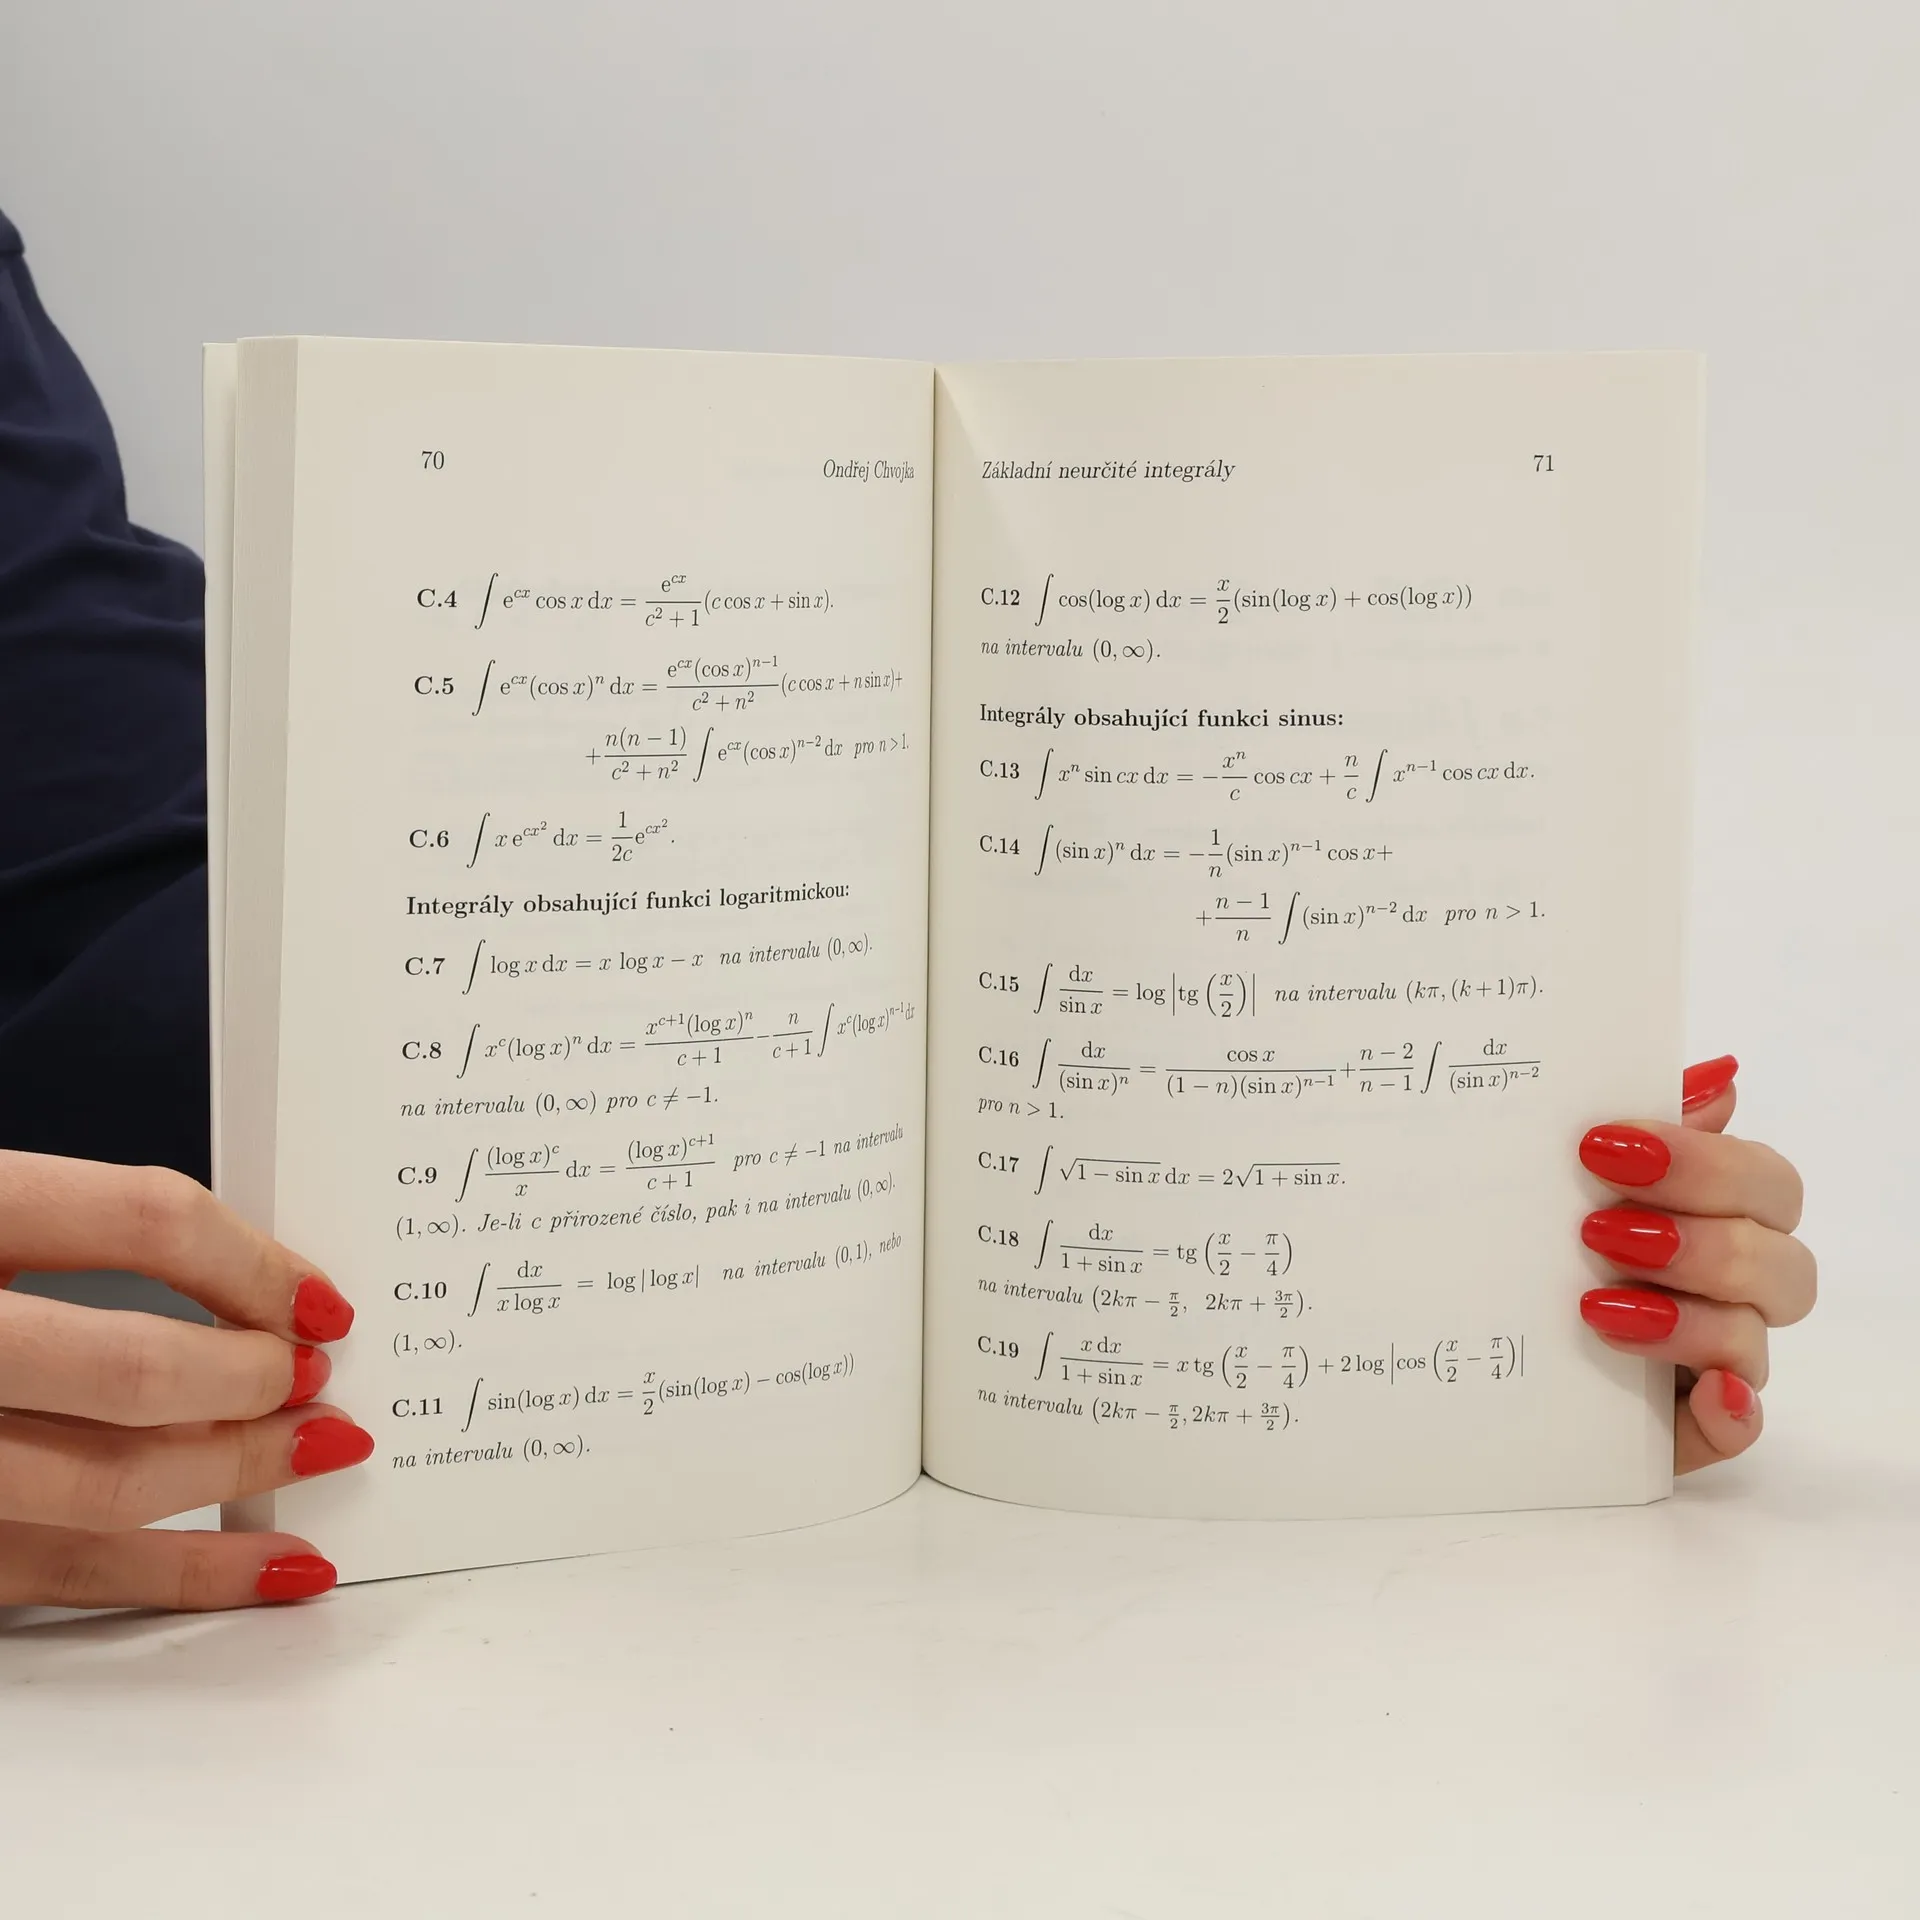 70 Ondřej Chvojka
C.4 ∫ e^{cx} cos x dx = \frac{e^{cx}}{c^2 + 1}(c cos x + sin x).
C.5 ∫ e^{cx}(cos x)^n dx = \frac{e^{cx}(cos x)^{n−1}}{c^2 + n^2}(c cos x + n sin x)+
+\frac{n(n − 1)}{c^2 + n^2} ∫ e^{cx}(cos x)^{n−2} dx pro n > 1.
C.6 ∫ x e^{cx^2} dx = \frac{1}{2c}e^{cx^2}.
Integrály obsahující funkci logaritmickou:
C.7 ∫ log x dx = x log x − x na intervalu (0, ∞).
C.8 ∫ x^c(log x)^n dx = \frac{x^{c+1}(log x)^n}{c + 1} − \frac{n}{c + 1} ∫ x^c(log x)^{n−1} dx
na intervalu (0, ∞) pro c ≠ −1.
C.9 ∫ \frac{(log x)^c}{x} dx = \frac{(log x)^{c+1}}{c + 1} pro c ≠ −1 na intervalu
(1, ∞). Je-li c přirozené číslo, pak i na intervalu (0, ∞).
C.10 ∫ \frac{dx}{x log x} = log | log x| na intervalu (0, 1), nebo
(1, ∞).
C.11 ∫ sin(log x) dx = \frac{x}{2}(sin(log x) − cos(log x))
na intervalu (0, ∞).
Základní neurčité integrály 71
C.12 ∫ cos(log x) dx = \frac{x}{2}(sin(log x) + cos(log x))
na intervalu (0, ∞).
Integrály obsahující funkci sinus:
C.13 ∫ x^n sin cx dx = −\frac{x^n}{c} cos cx + \frac{n}{c} ∫ x^{n−1} cos cx dx.
C.14 ∫ (sin x)^n dx = −\frac{1}{n}(sin x)^{n−1} cos x+
+\frac{n − 1}{n} ∫ (sin x)^{n−2} dx pro n > 1.
C.15 ∫ \frac{dx}{sin x} = log |tg (\frac{x}{2})| na intervalu (kπ, (k + 1)π).
C.16 ∫ \frac{dx}{(sin x)^n} = \frac{cos x}{(1 − n)(sin x)^{n−1}} + \frac{n − 2}{n − 1} ∫ \frac{dx}{(sin x)^{n−2}}
pro n > 1.
C.17 ∫ \sqrt{1 − sin x} dx = 2\sqrt{1 + sin x}.
C.18 ∫ \frac{dx}{1 + sin x} = tg (\frac{x}{2} − \frac{π}{4})
na intervalu (2kπ − \frac{π}{2}, 2kπ + \frac{3π}{2}).
C.19 ∫ \frac{x dx}{1 + sin x} = x tg (\frac{x}{2} − \frac{π}{4}) + 2 log |cos (\frac{x}{2} − \frac{π}{4})|
na intervalu (2kπ − \frac{π}{2}, 2kπ + \frac{3π}{2}).